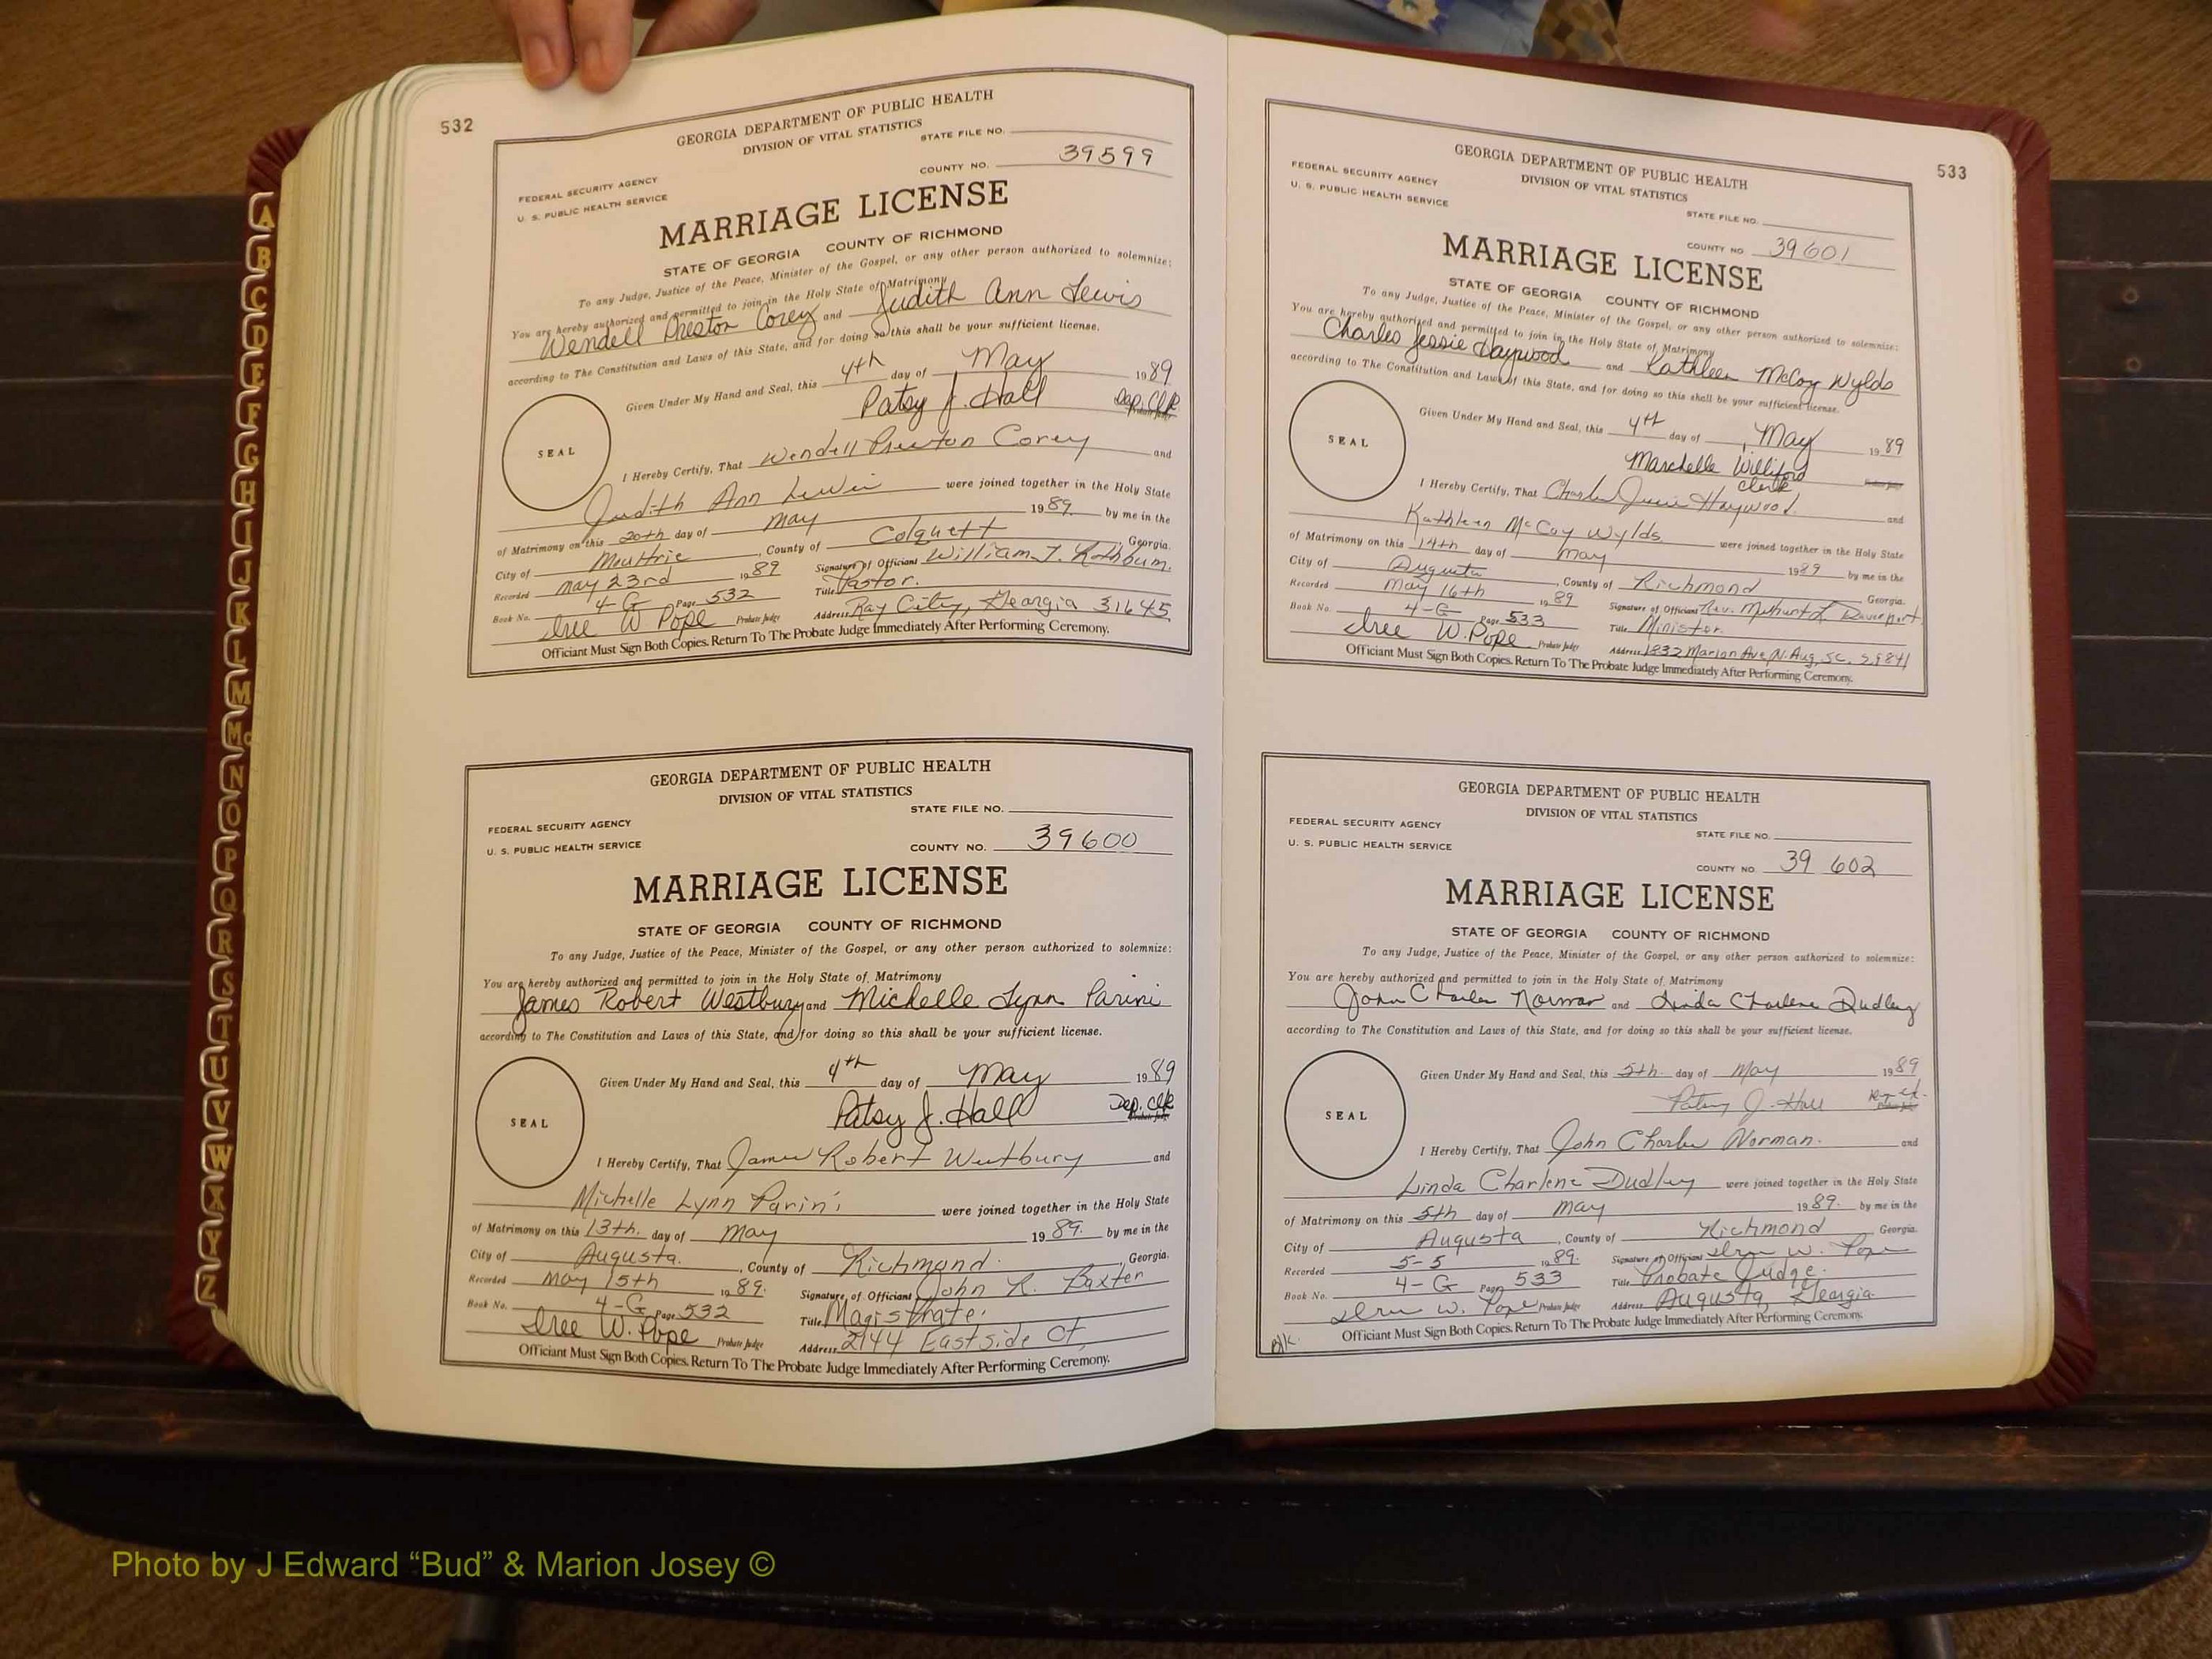 532
GEORGIA DEPARTMENT OF PUBLIC HEALTH
DIVISION OF VITAL STATISTICS
STATE FILE NO.
COUNTY NO. 39599
FEDERAL SECURITY AGENCY
U. S. PUBLIC HEALTH SERVICE
MARRIAGE LICENSE
STATE OF GEORGIA COUNTY OF RICHMOND
To any Judge, Justice of the Peace, Minister of the Gospel, or any other person authorized to solemnize:
You are hereby authorized and permitted to join in the Holy State of Matrimony
Wendell Preston Corey and Judith Ann Lewis
according to The Constitution and Laws of this State, and for doing so this shall be your sufficient license.
Given Under My Hand and Seal, this 4th day of May 1989
Patsy J. Hall Dep. Clk
Probate Judge
SEAL
I Hereby Certify, That Wendell Preston Corey and
Judith Ann Lewis were joined together in the Holy State
of Matrimony on this 20th day of May 1989. by me in the
City of Moultrie, County of Colquett, Georgia.
Recorded May 23rd 1989 Signature of Officiant William J. Rathburn.
Book No. 4-G Page 532 Title Pastor.
Iree W. Pope Probate Judge Address Ray City, Georgia 31645
Officiant Must Sign Both Copies. Return To The Probate Judge Immediately After Performing Ceremony.
GEORGIA DEPARTMENT OF PUBLIC HEALTH
DIVISION OF VITAL STATISTICS
STATE FILE NO.
FEDERAL SECURITY AGENCY
U. S. PUBLIC HEALTH SERVICE
COUNTY NO. 39600
MARRIAGE LICENSE
STATE OF GEORGIA COUNTY OF RICHMOND
To any Judge, Justice of the Peace, Minister of the Gospel, or any other person authorized to solemnize:
You are hereby authorized and permitted to join in the Holy State of Matrimony
James Robert Westbury and Michelle Lynn Parini
according to The Constitution and Laws of this State, and for doing so this shall be your sufficient license.
Given Under My Hand and Seal, this 4th day of May 1989
Patsy J. Hall Dep. Clk
Probate Judge
SEAL
I Hereby Certify, That James Robert Westbury and
Michelle Lynn Parini were joined together in the Holy State
of Matrimony on this 13th. day of May 1989. by me in the
City of Augusta., County of Richmond., Georgia.
Recorded May 15th 1989. Signature of Officiant John R. Baxter
Book No. 4-G Page 532 Title Magistrate.
Iree W. Pope Probate Judge Address 2144 Eastside Ct
Officiant Must Sign Both Copies. Return To The Probate Judge Immediately After Performing Ceremony.
533
GEORGIA DEPARTMENT OF PUBLIC HEALTH
DIVISION OF VITAL STATISTICS
FEDERAL SECURITY AGENCY
U. S. PUBLIC HEALTH SERVICE
STATE FILE NO.
COUNTY NO. 39601
MARRIAGE LICENSE
STATE OF GEORGIA COUNTY OF RICHMOND
To any Judge, Justice of the Peace, Minister of the Gospel, or any other person authorized to solemnize:
You are hereby authorized and permitted to join in the Holy State of Matrimony
Charles Jessie Haywood and Kathleen McCoy Wylds
according to The Constitution and Laws of this State, and for doing so this shall be your sufficient license.
Given Under My Hand and Seal, this 4th day of May 1989
Marchelle Williford
Clerk Probate Judge
SEAL
I Hereby Certify, That Charles Jessie Haywood. and
Kathleen McCoy Wylds were joined together in the Holy State
of Matrimony on this 14th day of May 1989 by me in the
City of Augusta, County of Richmond Georgia.
Recorded May 16th 1989 Signature of Officiant Rev. Davenport.
Book No. 4-G Page 533 Title Minister.
Iree W. Pope Probate Judge Address 1832 Marion Ave, N. Aug, SC.
Officiant Must Sign Both Copies. Return To The Probate Judge Immediately After Performing Ceremony.
GEORGIA DEPARTMENT OF PUBLIC HEALTH
DIVISION OF VITAL STATISTICS
FEDERAL SECURITY AGENCY
STATE FILE NO.
U. S. PUBLIC HEALTH SERVICE
COUNTY NO. 39 602
MARRIAGE LICENSE
STATE OF GEORGIA COUNTY OF RICHMOND
To any Judge, Justice of the Peace, Minister of the Gospel, or any other person authorized to solemnize:
You are hereby authorized and permitted to join in the Holy State of Matrimony
John Charles Norman and Linda Charlene Dudley
according to The Constitution and Laws of this State, and for doing so this shall be your sufficient license.
Given Under My Hand and Seal, this 5th day of May 1989
Patsy J. Hall
SEAL
I Hereby Certify, That John Charles Norman. and
Linda Charlene Dudley were joined together in the Holy State
of Matrimony on this 5th day of May 1989. by me in the
City of Augusta, County of Richmond, Georgia.
Recorded 5-5 1989. Signature of Officiant Iree W. Pope
Book No. 4-G Page 533 Title Probate Judge.
Iree W. Pope Probate Judge Address Augusta, Georgia.
Blk.
Officiant Must Sign Both Copies. Return To The Probate Judge Immediately After Performing Ceremony.
A
B
C
D
E
F
G
H
I
J
K
L
M
Mc
N
O
P
Q
R
S
T
U
V
W
X
Y
Z
Photo by J Edward “Bud” & Marion Josey ©